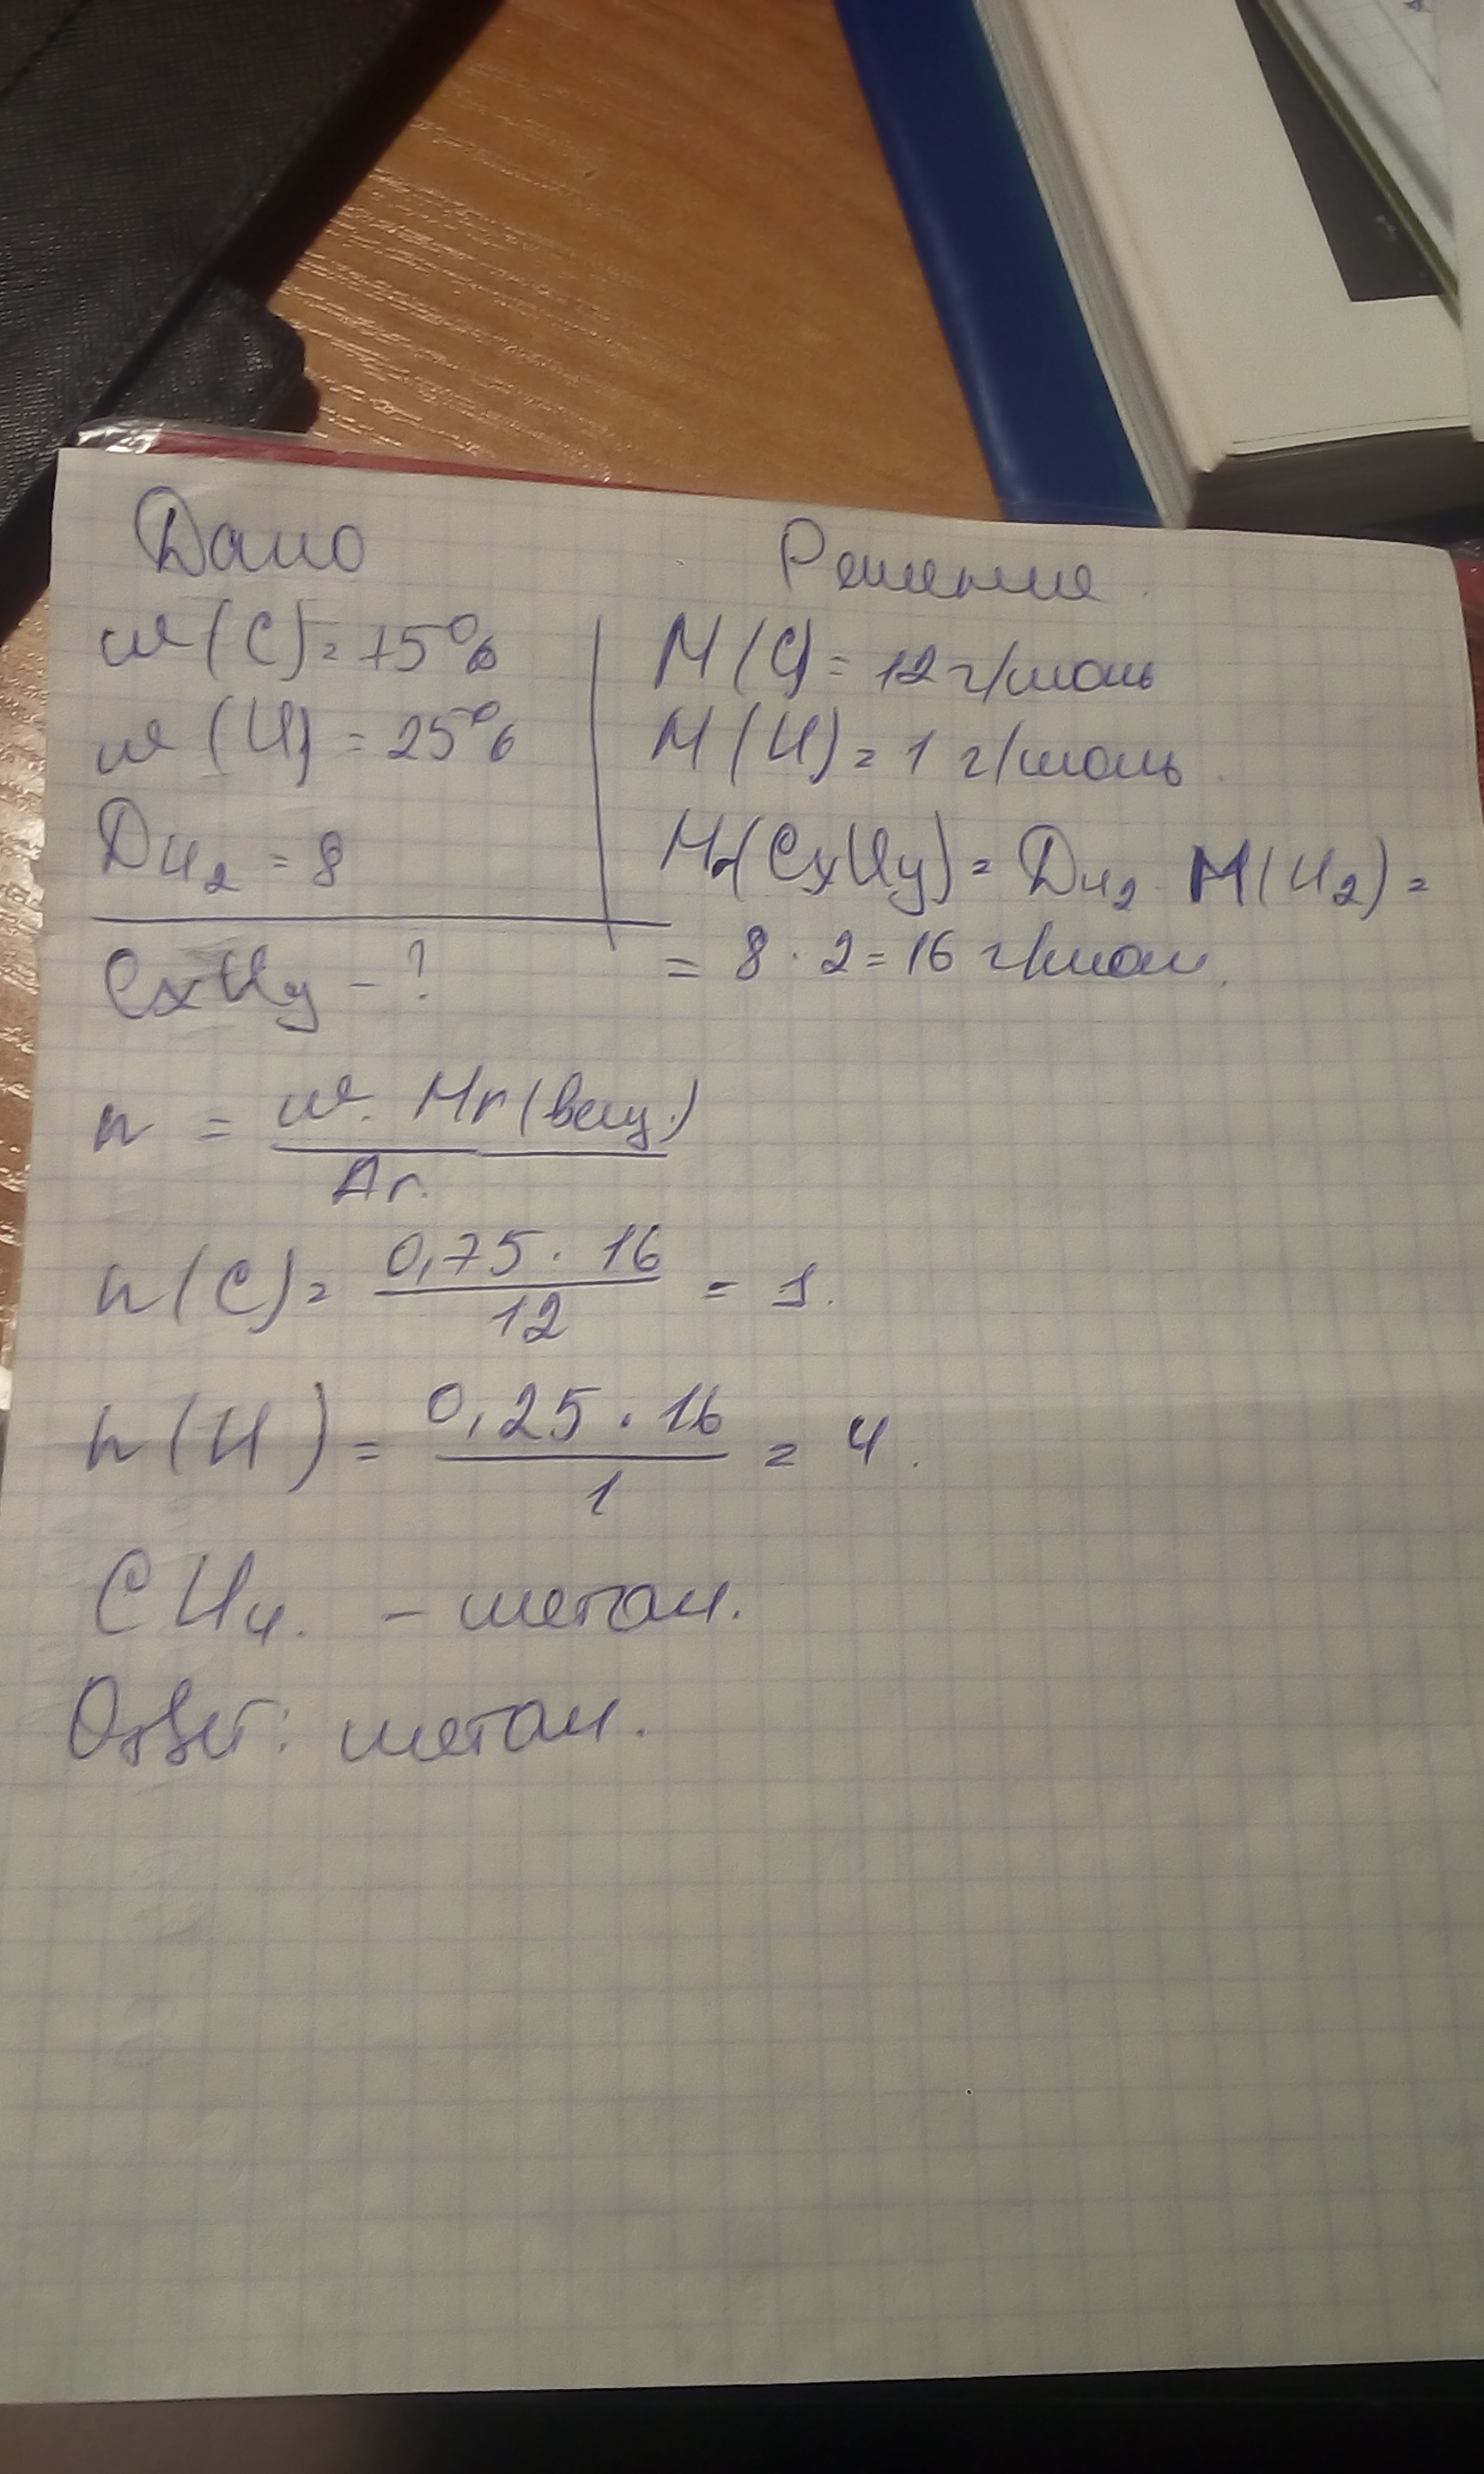 Дано
w(C) = 75%
w(H) = 25%
DH₂ = 8
CxHy - ?
Решение
M(C) = 12 г/моль
M(H) = 1 г/моль
Mr(CxHy) = DH₂ · M(H₂) =
= 8 · 2 = 16 г/мол.
n = w · Mr(вещ.) / Ar.
n(C) = 0,75 · 16 / 12 = 1.
n(H) = 0,25 · 16 / 1 = 4.
CH₄. - метан.
Ответ: метан.